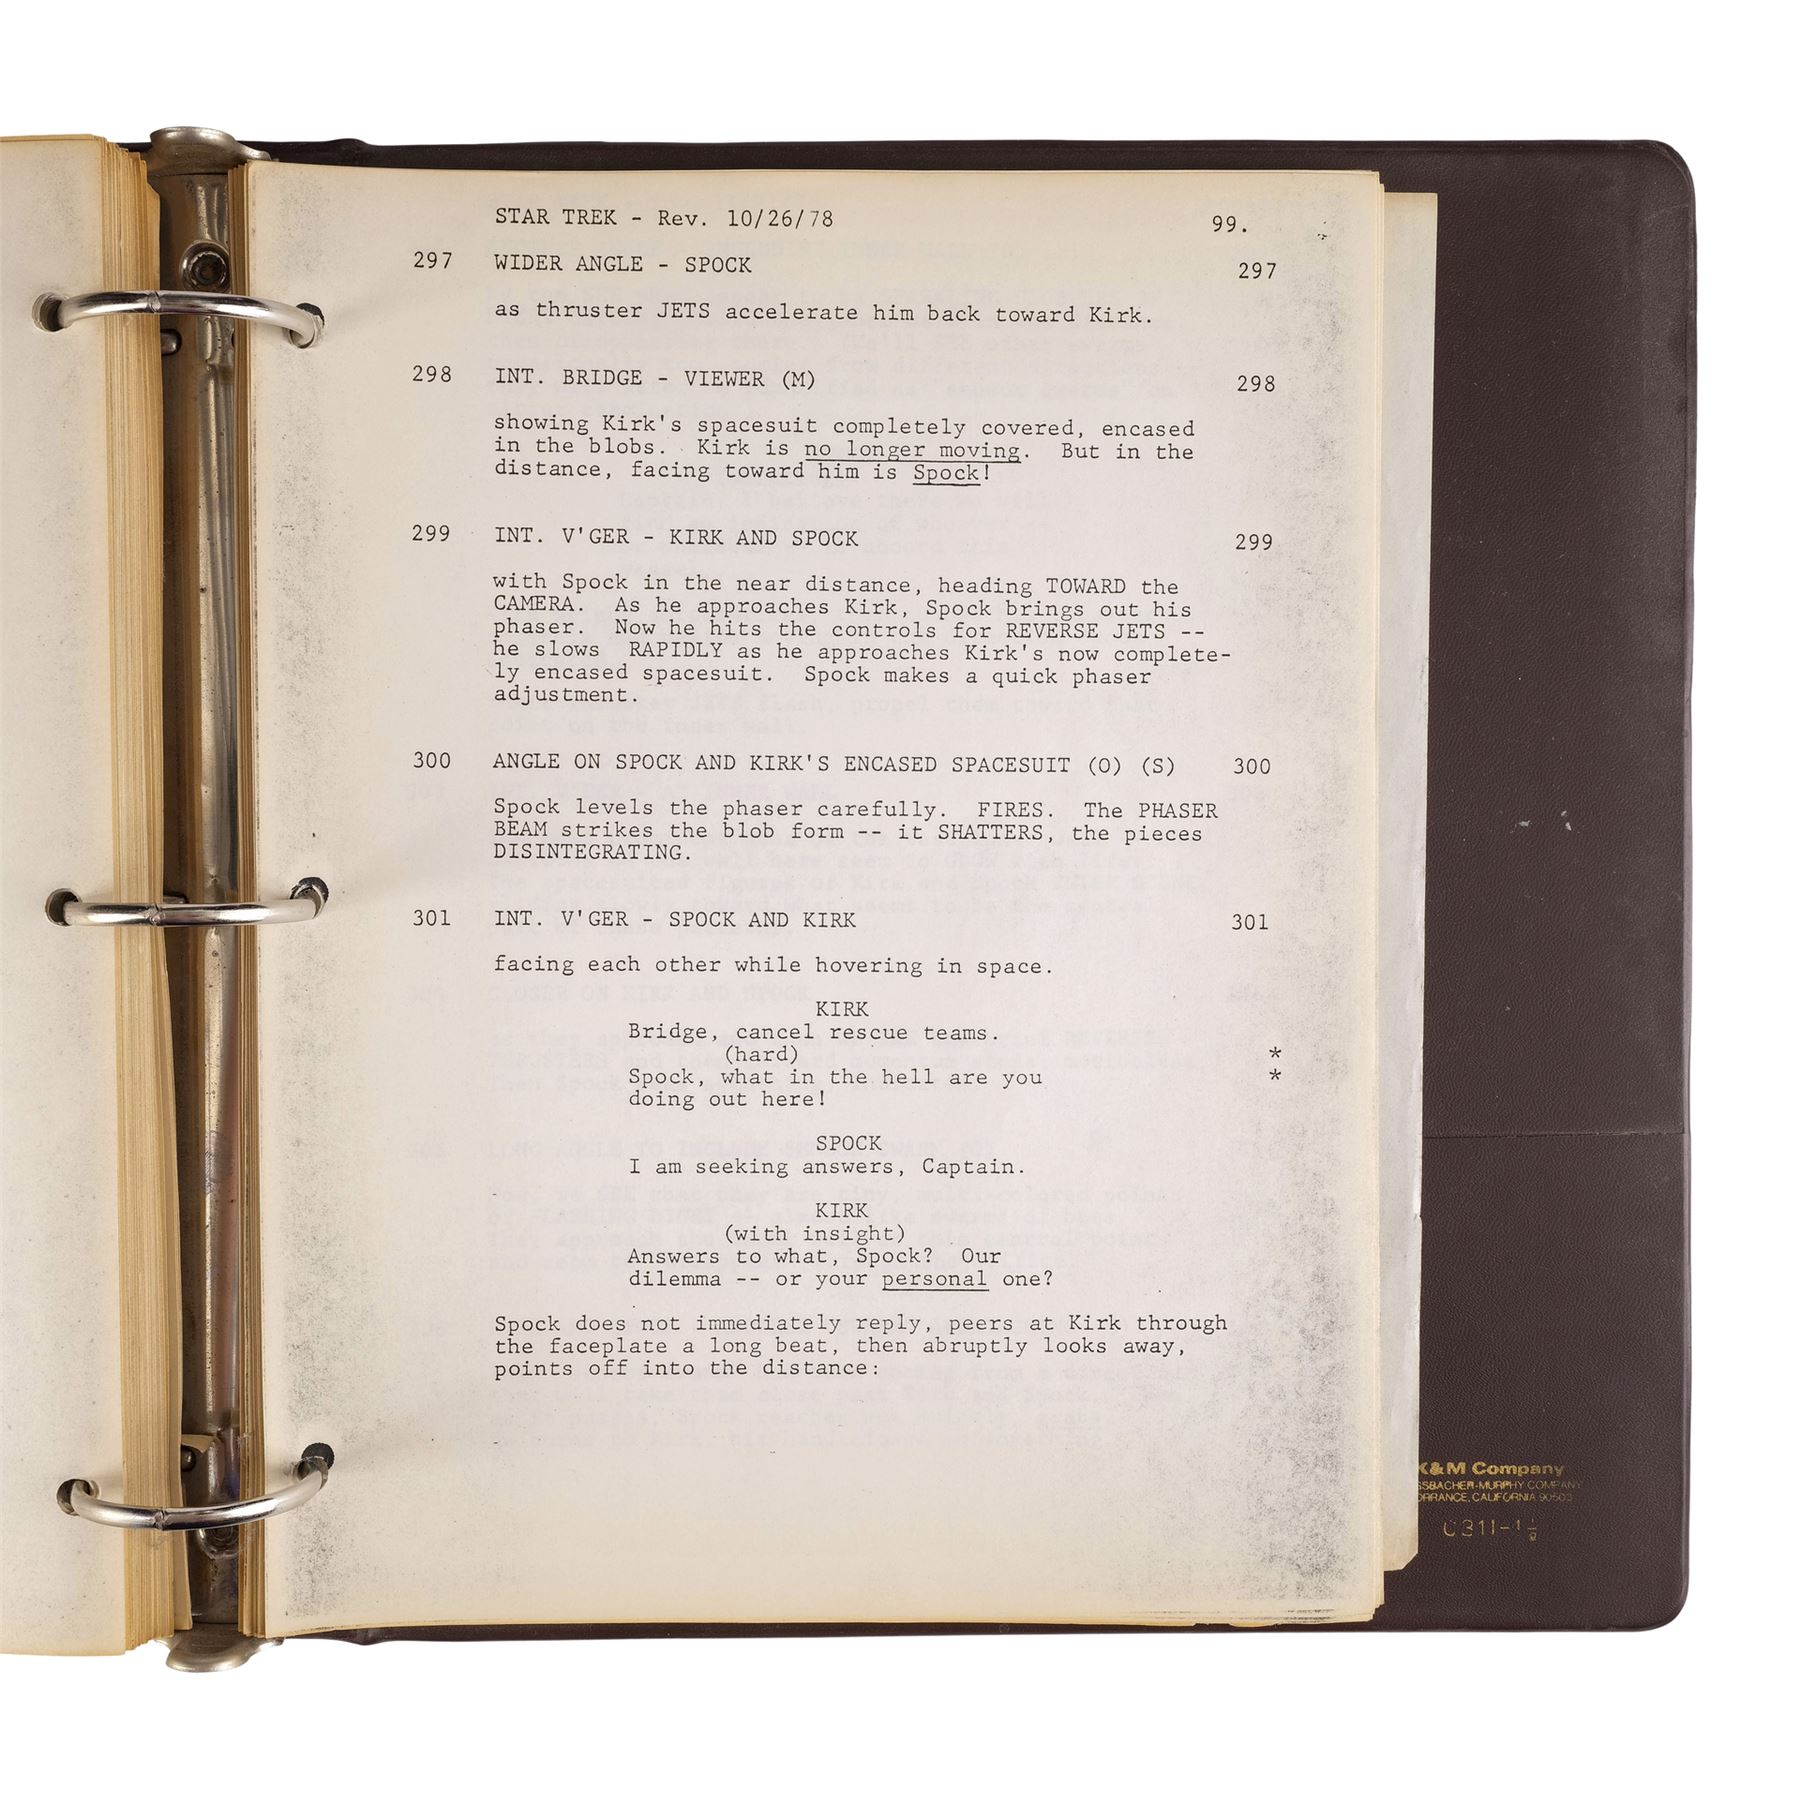 STAR TREK - Rev. 10/26/78 99.
297 WIDER ANGLE - SPOCK 297
as thruster JETS accelerate him back toward Kirk.
298 INT. BRIDGE - VIEWER (M) 298
showing Kirk's spacesuit completely covered, encased
in the blobs. Kirk is no longer moving. But in the
distance, facing toward him is Spock!
299 INT. V'GER - KIRK AND SPOCK 299
with Spock in the near distance, heading TOWARD the
CAMERA. As he approaches Kirk, Spock brings out his
phaser. Now he hits the controls for REVERSE JETS --
he slows RAPIDLY as he approaches Kirk's now complete-
ly encased spacesuit. Spock makes a quick phaser
adjustment.
300 ANGLE ON SPOCK AND KIRK'S ENCASED SPACESUIT (O) (S) 300
Spock levels the phaser carefully. FIRES. The PHASER
BEAM strikes the blob form -- it SHATTERS, the pieces
DISINTEGRATING.
301 INT. V'GER - SPOCK AND KIRK 301
facing each other while hovering in space.
KIRK
Bridge, cancel rescue teams.
(hard) *
Spock, what in the hell are you *
doing out here!
SPOCK
I am seeking answers, Captain.
KIRK
(with insight)
Answers to what, Spock? Our
dilemma -- or your personal one?
Spock does not immediately reply, peers at Kirk through
the faceplate a long beat, then abruptly looks away,
points off into the distance:
K&M Company
SBACHER-MURPHY COMPANY
ORRANCE, CALIFORNIA 90503